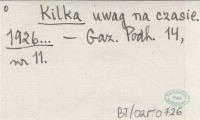 Kilka uwag na czasie.
1926... — Gaz. Podh. 14,
nr 11.
BJ/carto 726